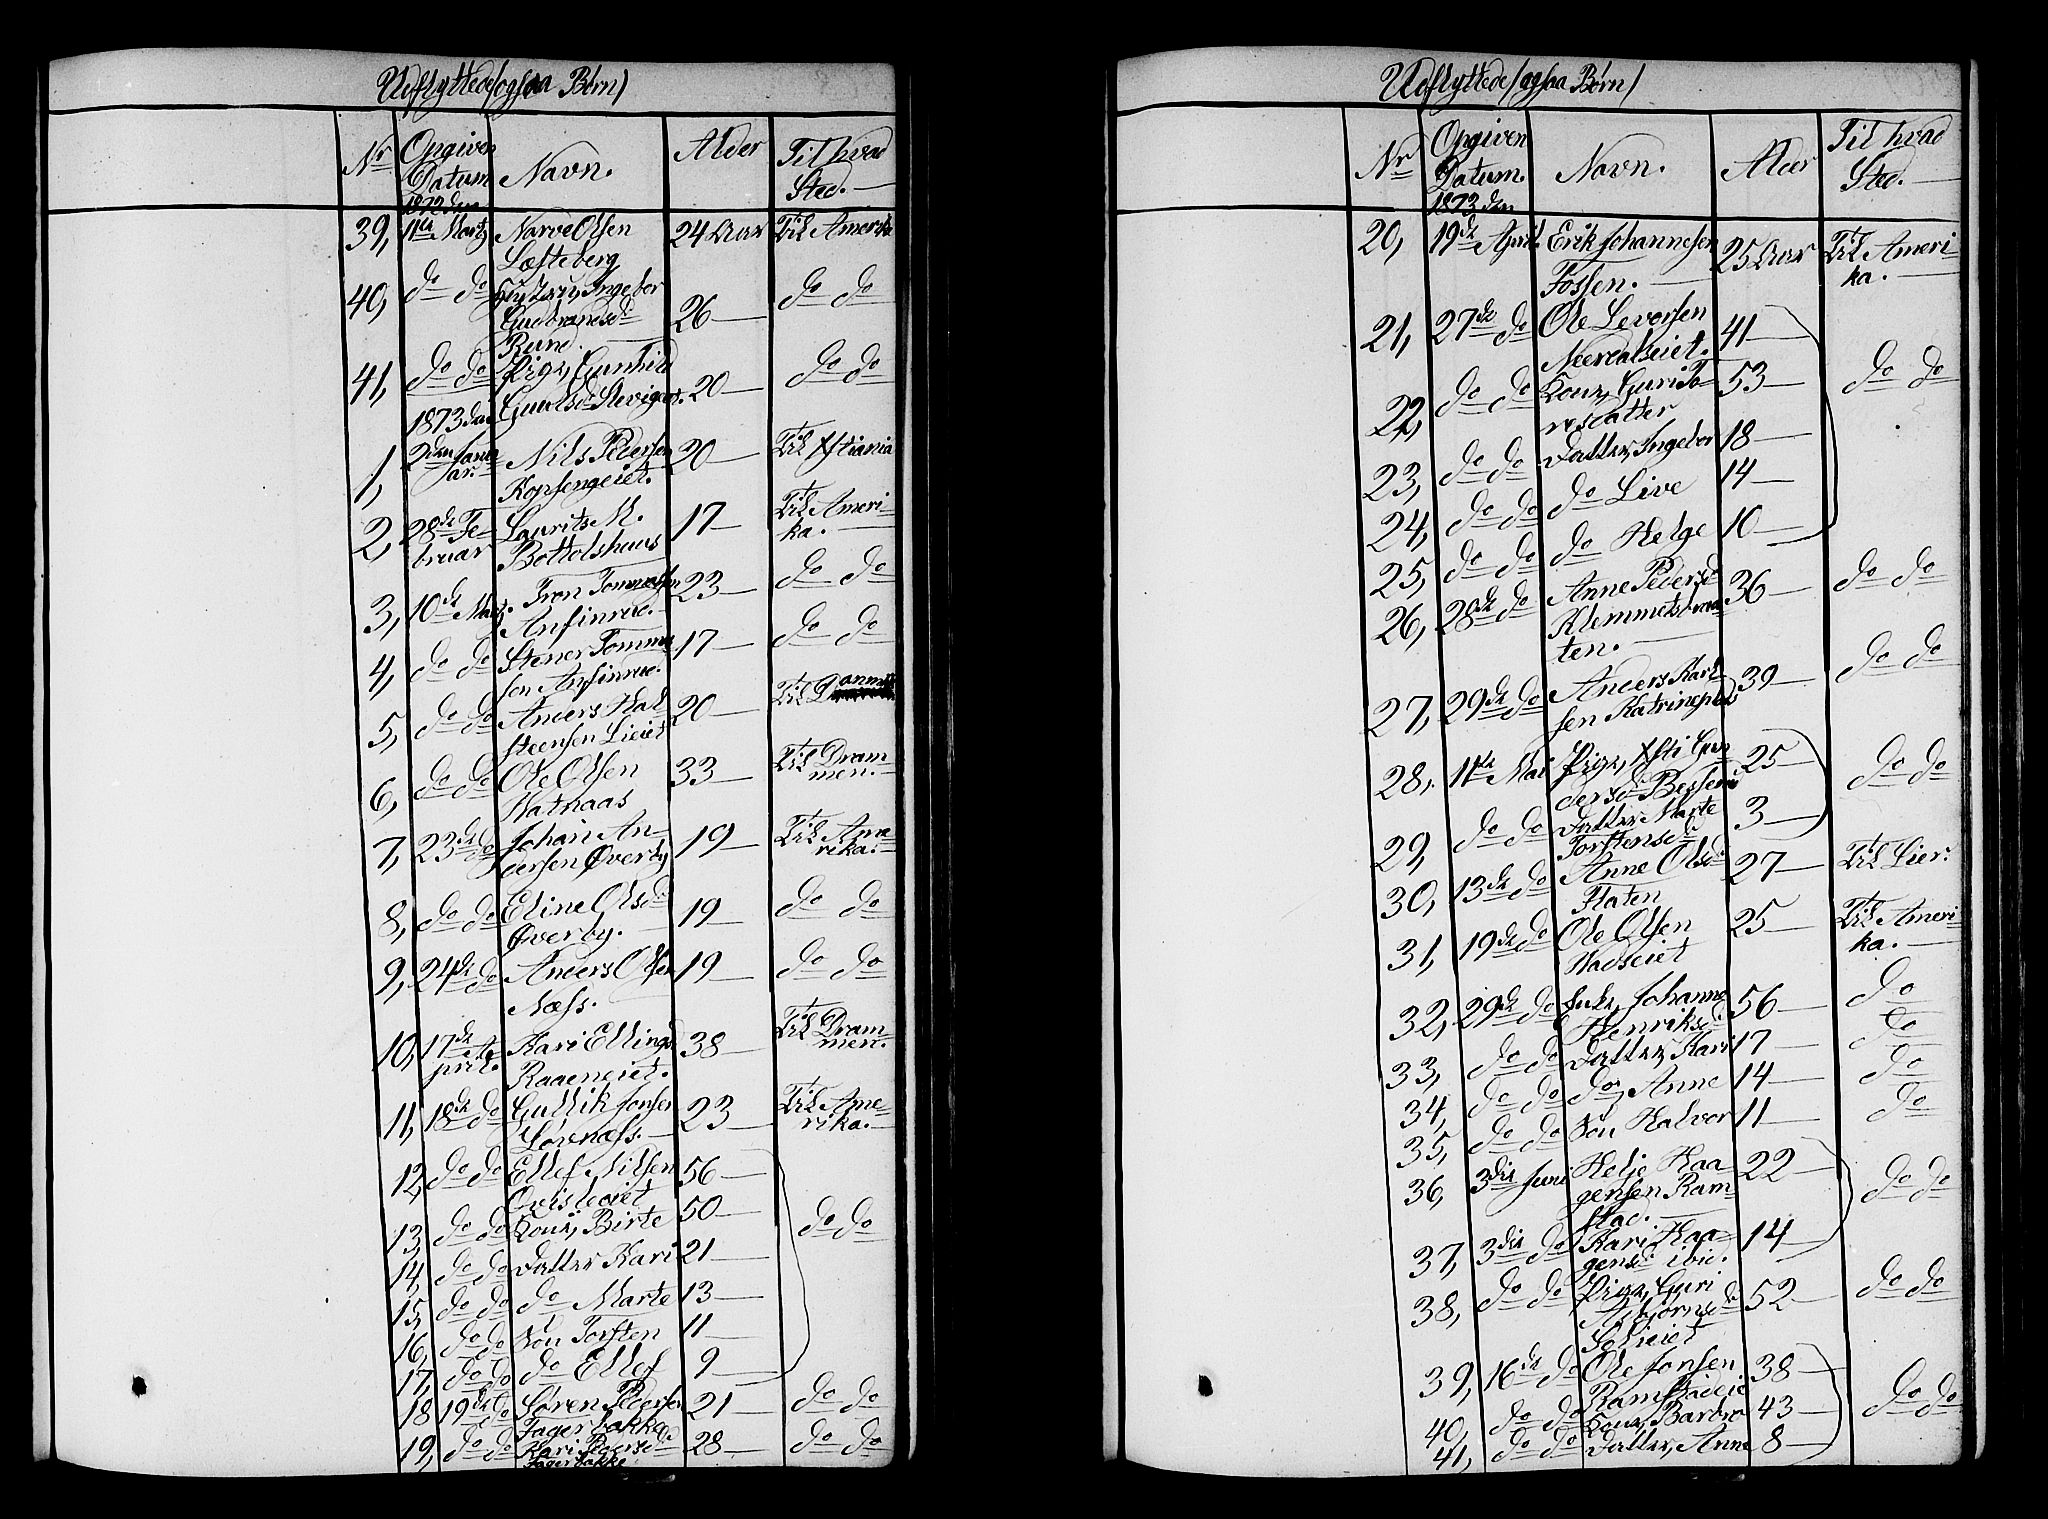 Udflyttede (ogsaa Børn)
Nr Opgiven Datum 1872 den Navn. Alder Til hvad Sted.
39, 11te Marts Narve Olsen 24 Aar Til Amerika
Løsteberg
40, do do Ingebor 26 — do do
Gudbrandsd.
Rund.
41, do do Pige, Gunhild 20 — do do
1873 den
1, 2den Januar Nils Pedersen 20 — Til Xtiania
Kopsengeiet.
2, 28de Februar Laurits M. 17 — Til Amerika.
Bottolshuus
3, 10de Marts Tron Tommassen 23 — do do
Anfinrud.
4, do do Stener Tommas 17 — do do
sen Anfinrud.
5, do do Anders Hal 20 — Til Danm
steensen Lieiet
6, do do Ole Olsen 33 — Til Drammen.
Natraas
7, 23de do Johan An- 19 — Til Amerika.
dersen Øverby
8, do do Eline Olsd. 19 — do do
Øverby.
9, 24de do Anders Olsen 19 — do do
Næss.
10, 17de April. Kari Ellingsd 38 — Til Drammen.
Raaeneiet.
11, 18de do Gullik Jonsen 23 — Til Amerika.
Løvnæss.
12, do do Ellef Nilsen 56 — do do
13, do do Kone, Birte 50 —
14, do do Datter Kari 21 —
15, do do do Marte 13 —
16, do do Søn Torsten 11 —
17, do do do Ellef 9 —
18 19de do Søren Pedersen 21 — do do
Fagerbakke
19, do do Kari Pedersd 28 — do do
Fagerbakke
Udflyttede (ogsaa Børn)
Nr Opgiven Datum. 1873 den Navn. Alder Til hvad Sted.
20, 19de April Erik Johannesen 25 Aar Til Amerika.
Fossen.
21, 27de do Ole Leversen 41 — do do
Neeredalseiet.
22, do do Kone, Guri To- 53 —
resdatter
23, do do Datter, Ingebor 18 —
24, do do do Live 14 —
25, do do do Helge 10 —
26, 28de do Anne Pedersd 36 — do do
Klemmetsbraa-
ten.
27, 29de do Anders Karl 39 — do do
sen Katrineplds
28, 11te Mai Pige, Xsti Gun 25 — do do
dersd. Besseru
29, do do Datter Marte 3 —
Torstensd.
30, 13de do Anne Olsd. 27 — Til Lier.
Flaten
31, 19de do Ole Olsen 25 — Til Amerika.
Hadseiet
32, 29de do Enke, Johanne 56 — do
Henriksd
33, do do Datter, Kari 17 — do
34, do do do, Anne 14 — do
35, do do Søn Halvor 11 — do
36, 3die Juni Helje Haa- 22 — do do
gensen Ram-
stad. —
37, 3die do Kari Haa- 14 —
gensd. ibid.
38, do do Pige, Guri 52 — do do
Asbjørnsd
Solieiet
39, 16de do Ole Jonsen 38 — do do
Ramstadeie
40, do do Kone, Barbro 43 —
41, do do Datter, Anne 8 —